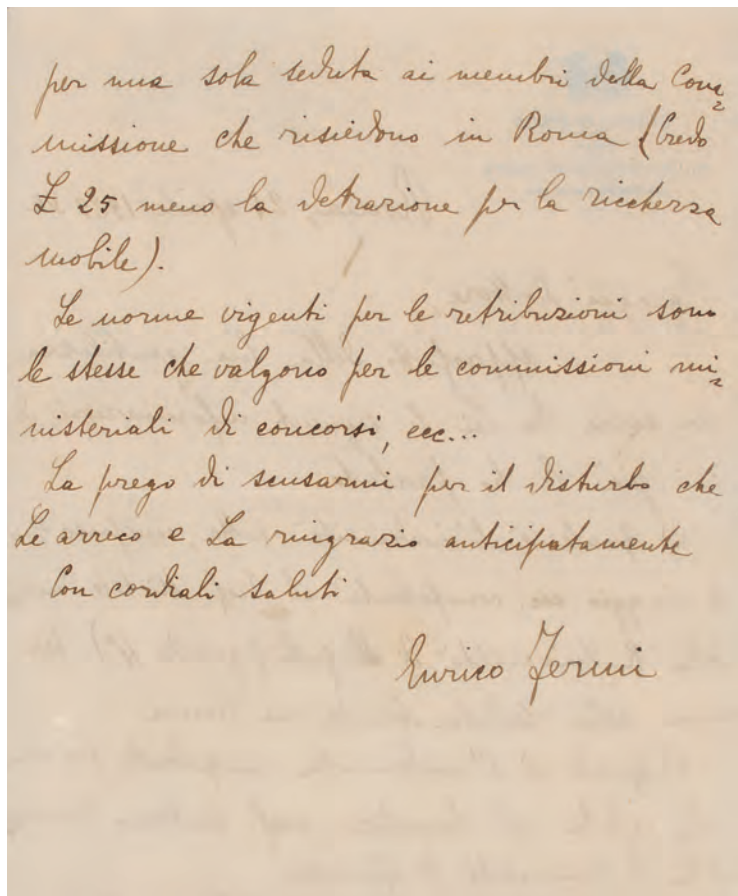 per una sola seduta ai membri della Com=
missione che risiedono in Roma (Credo
£ 25 meno la detrazione per la ricchezza
mobile).
Le norme vigenti per le retribuzioni sono
le stesse che valgono per le commissioni mi=
nisteriali di concorsi, ecc...
La prego di scusarmi per il disturbo che
Le arreco e La ringrazio anticipatamente
Con cordiali saluti
Enrico Fermi